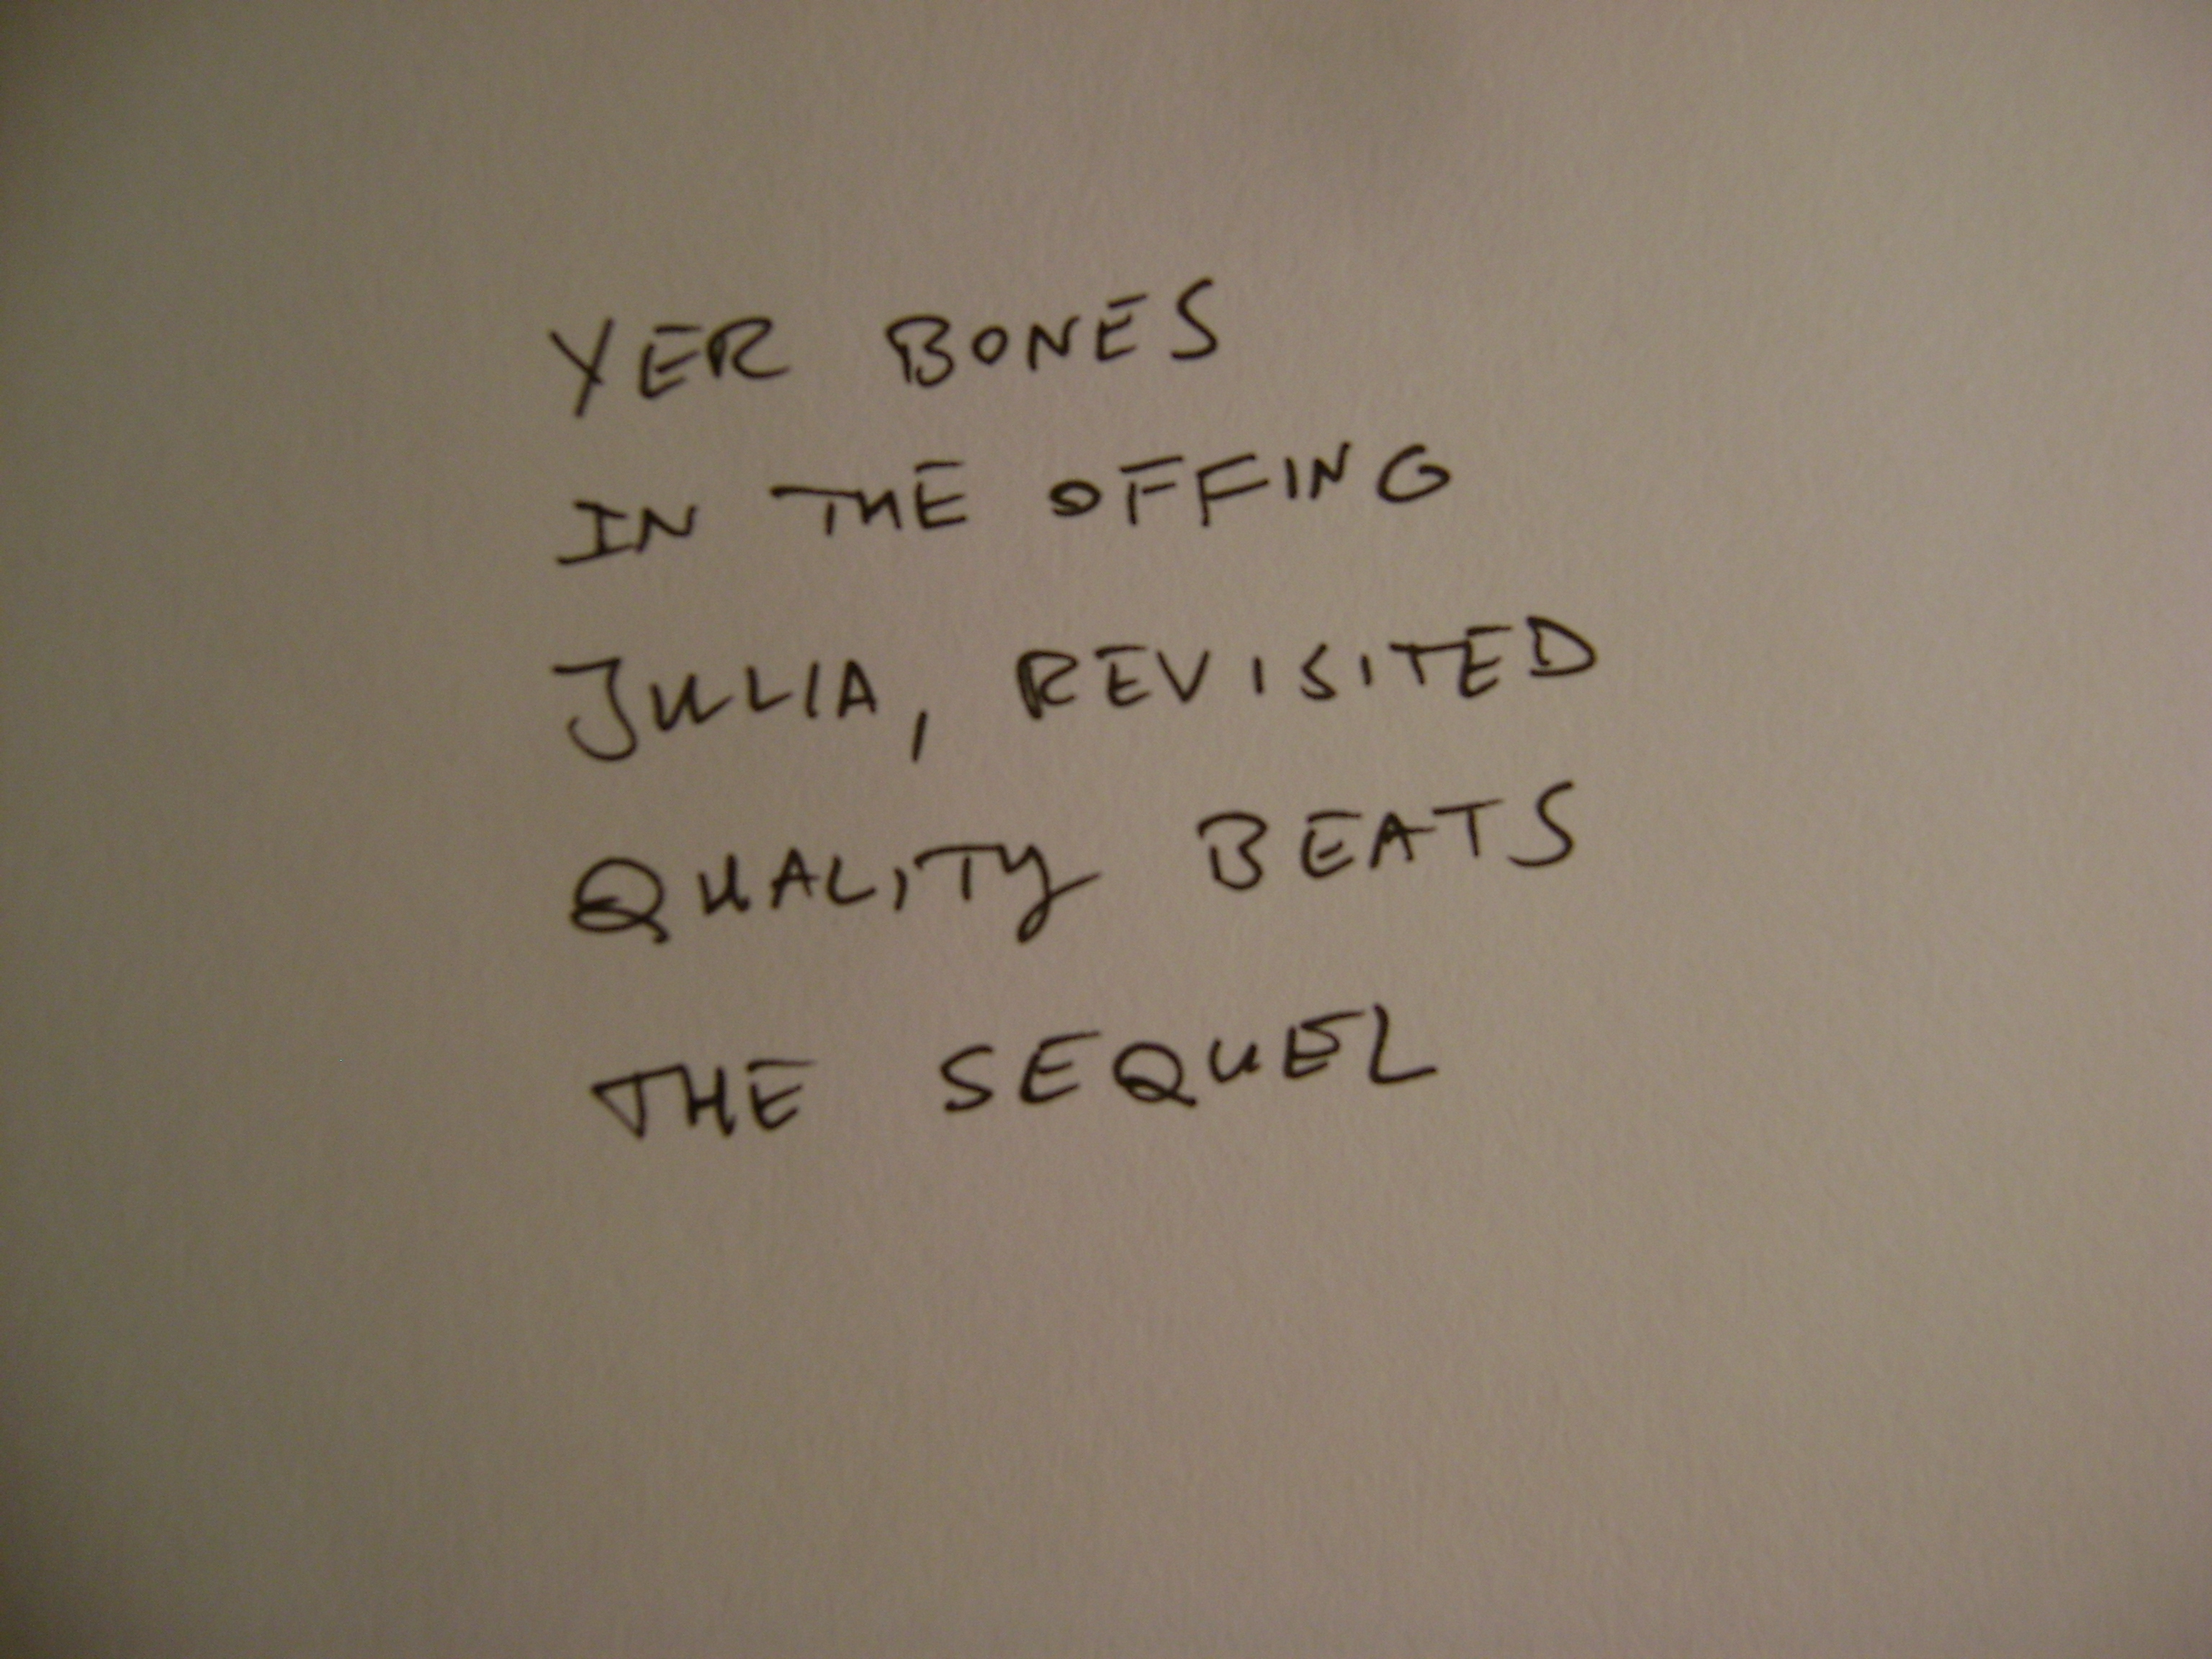 YER BONES
IN THE OFFING
JULIA, REVISITED
QUALITY BEATS
THE SEQUEL